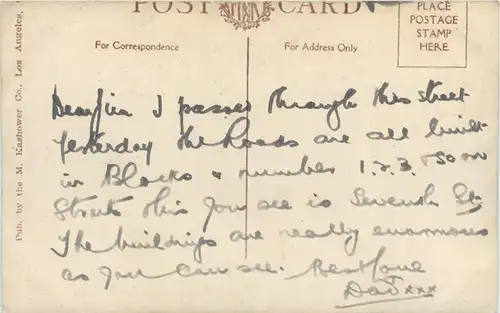 POST CARD
PLACE
POSTAGE
STAMP
HERE
For Correspondence
For Address Only
Pub. by the M. Kashower Co., Los Angeles,
Dear Jim I passed through this street
yesterday the Roads are all built
in Blocks & number 1.2.3. & so on
Streets this you see is Seventh St
The buildings are really enormous
as you can see. Best love
Dad xxx